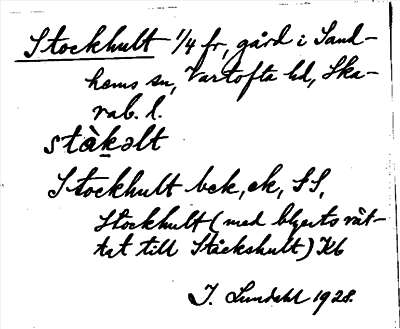 Stockhult 1/4 fr, gård i Sand-
hems sn, Vartofta hd, Ska-
rab. l.
stàkəlt
Stockhult bek, ek, SS,
Stockhult (med blyerts rät-
tat till Stäckshult) Kb
J. Lundahl 1928.